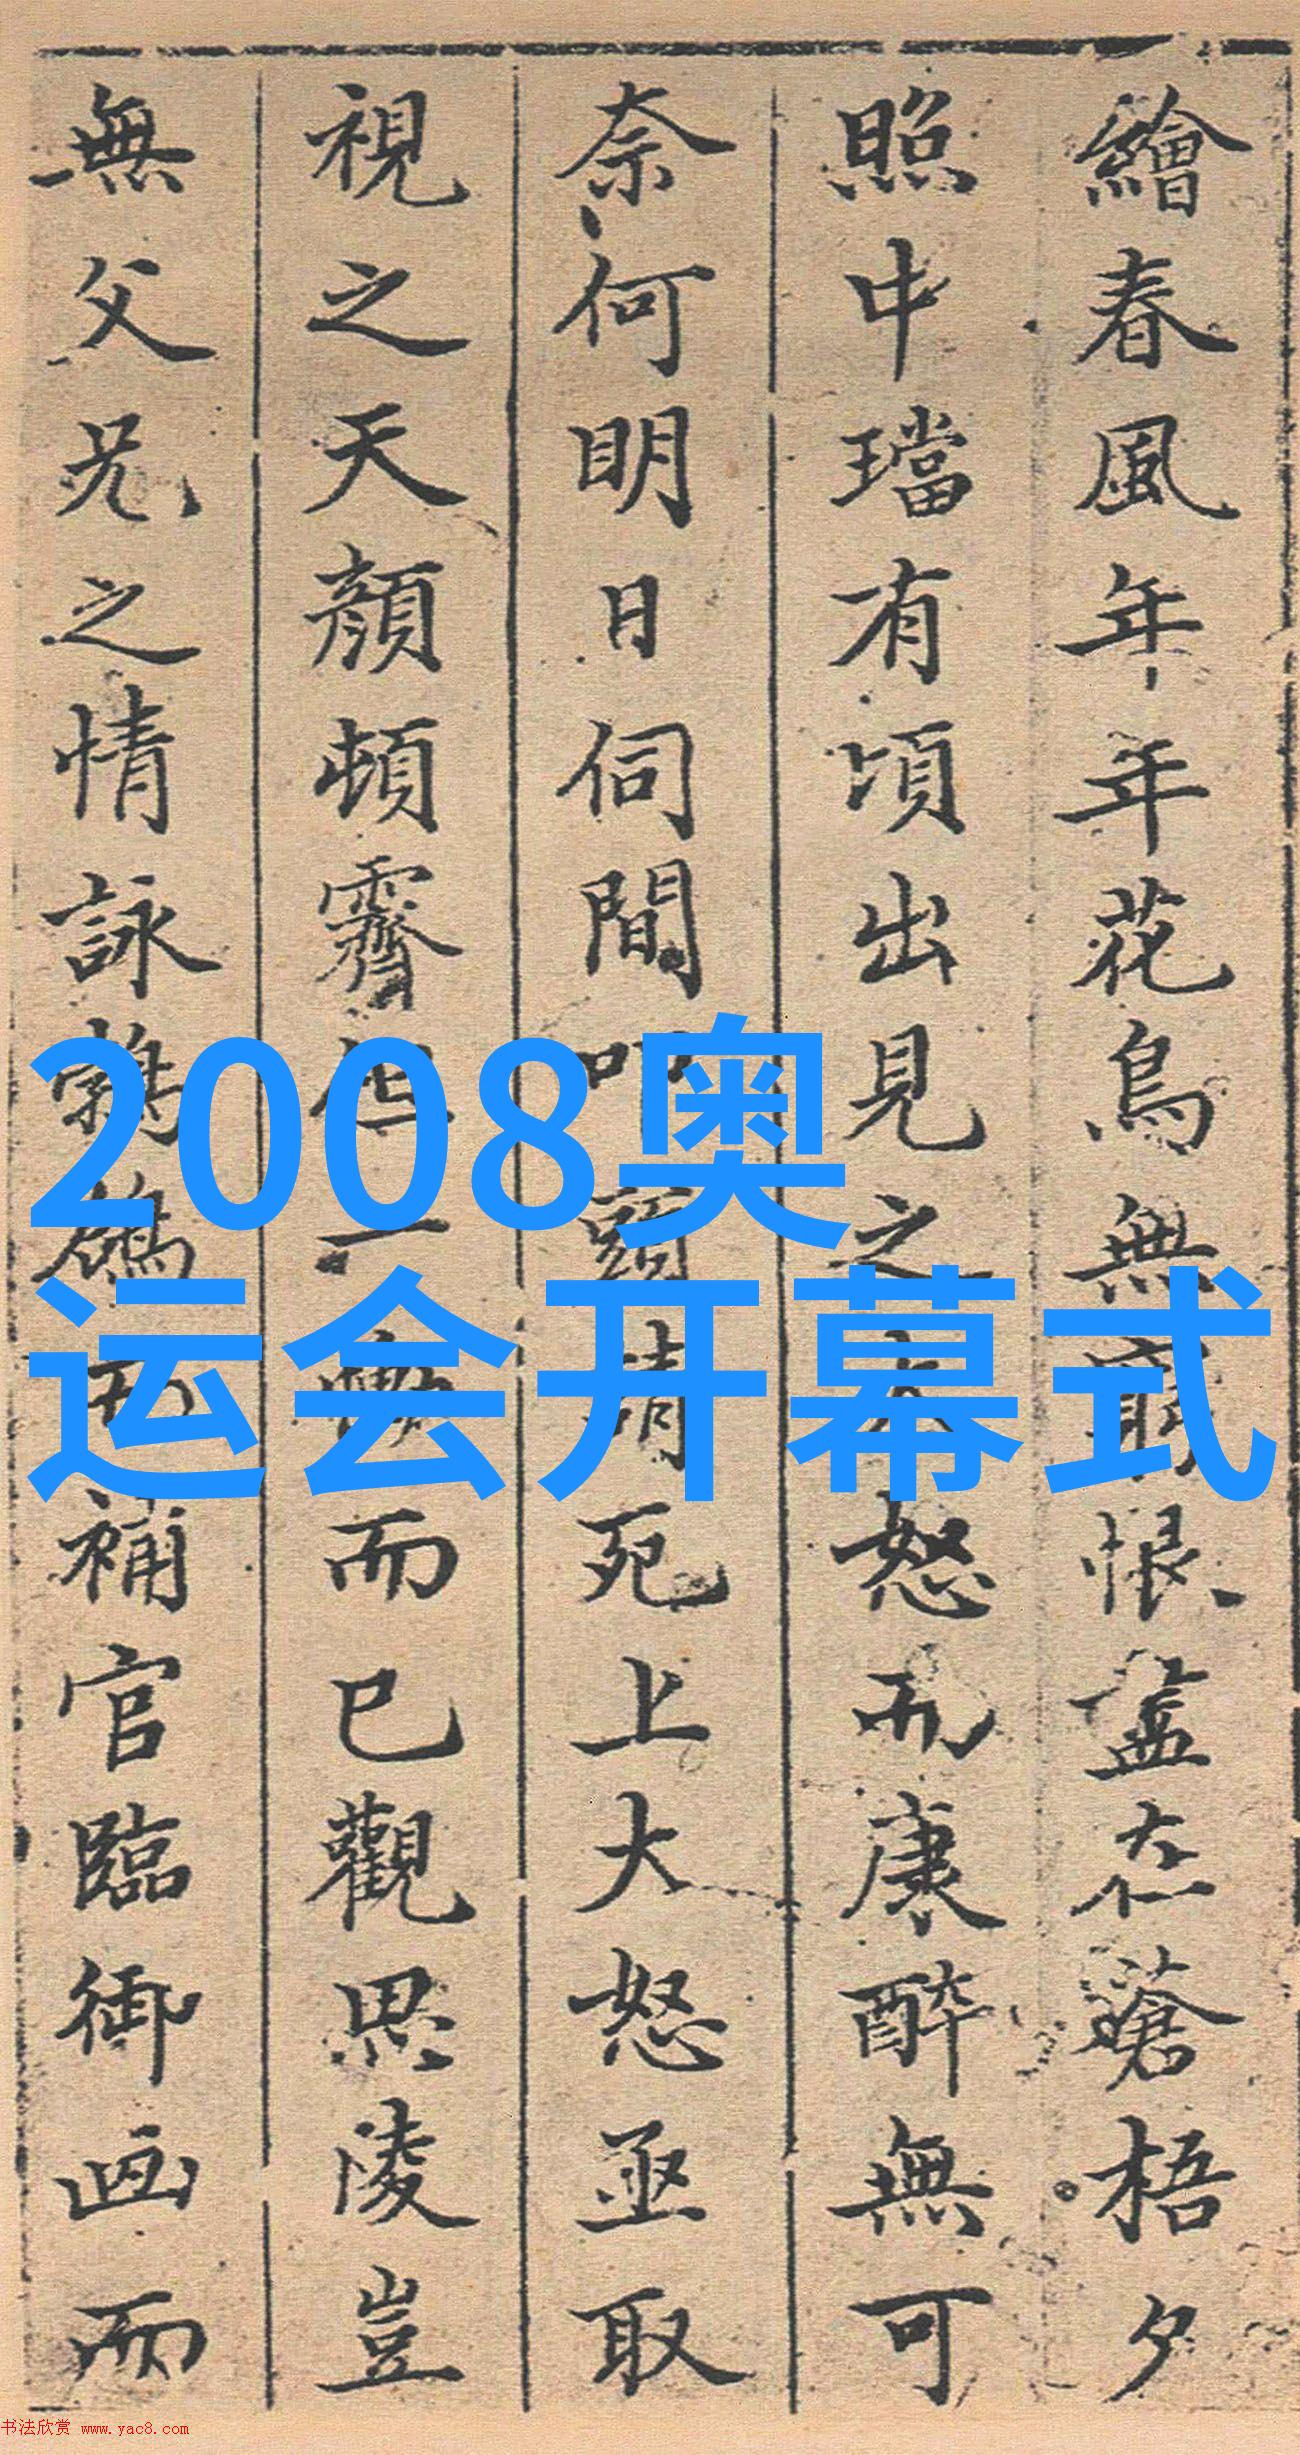 繪春風年年花鳥無窮恨盡在蒼梧夕
照中璫有頃出見之大怒而康醉無可
奈何明日伺間叩頭請死上大怒亟取
視之天顏頓霽但一慟而已觀思陵豈
無父兄之情詠鶺鴒而補官臨御畫而
2008奥
运会开幕式
书法欣赏 www.yac8.com